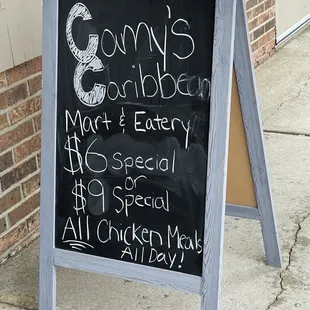 Camy's
Caribbean
Mart & Eatery
$6 Special
or
$9 Special
All Chicken Meals
All Day!